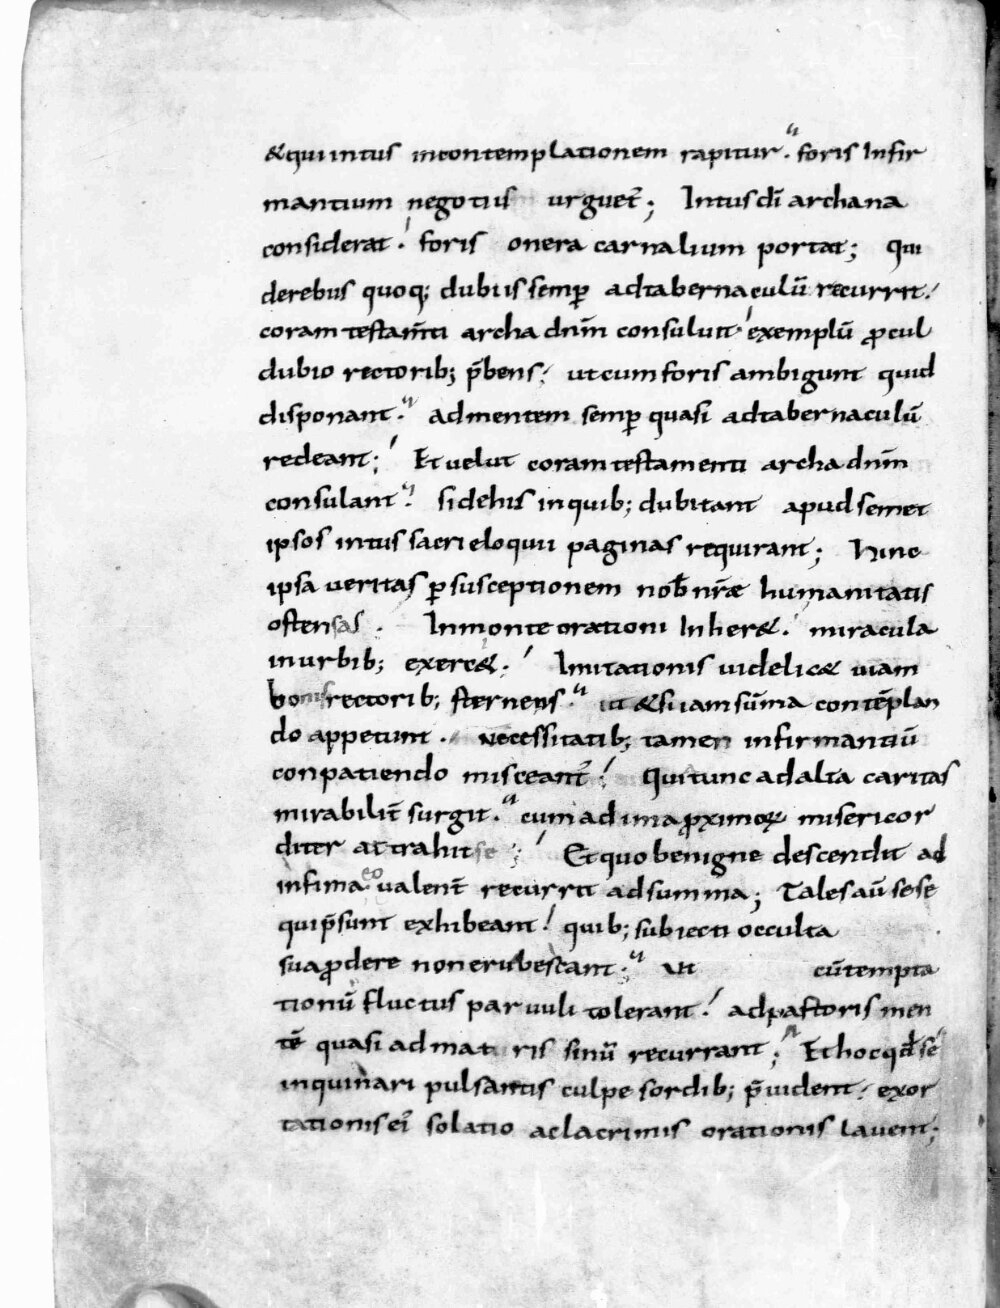 &qui intus incontemplationem rapitur. foris Infir
mantium negotiis urguet̄; Intus dī archana
considerat. foris onera carnalium portat; Qui
derebus quoq; dubiis semp̄ adtabernaculū recurrit.
coram testam̄ti archa dn̄m consuluit. exemplū ꝓcul
dubio rectorib; p̄bens. ut cum foris ambigunt quid
disponant. admentem semp̄ quasi adtabernaculū
redeant; Et uelut coram testamenti archa dn̄m
consulant. si dehis in quib; dubitant apud semet
ipsos intus sacri eloquii paginas requirant; Hinc
ipsa ueritas ꝑ susceptionem nob̄ nr̄ae humanitatis
ostensas. Inmonte orationi Inher&. miracula
inurbib; exerc&. Imitationis uidelic& uiam
bonis rectorib; sternens. ut &si iam sūma contēplan
do appetunt. necessitatib; tamen infirmantiū
conpatiendo misceant̄. Qui tunc adalta caritas
mirabilit̄ surgit. cum ad ima ꝓximoꝝ misericor
diter attrahit se; Et quo benigne descendit ad
infima eo ualent̄ recurrit adsumma; Tales aū sese
qui p̄sunt exhibeant. quib; subiecti occulta
sua ꝓdere non erubescant. Ut cū tempta
tionū fluctus paruuli tolerant. adpastoris men
tē quasi ad matris sinū recurrant; Et hoc qd̄ sē
inquinari pulsantis culpe sordib; p̄uident. exor
tationis ei' solatio ac lacrimis orationis lauent;